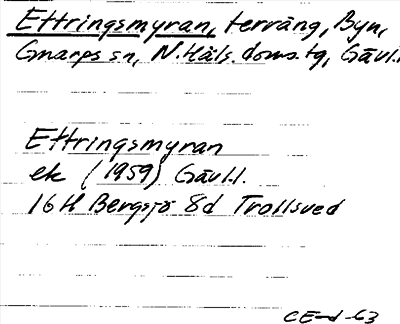 Ettringsmyran, terräng, Byn,
Gnarps sn, N. Häls. doms.tg, Gävl.l
Ettringsmyran
ek (1959) Gävl.l.
16 H Bergsjö 8d Trollsved
CE-d-63